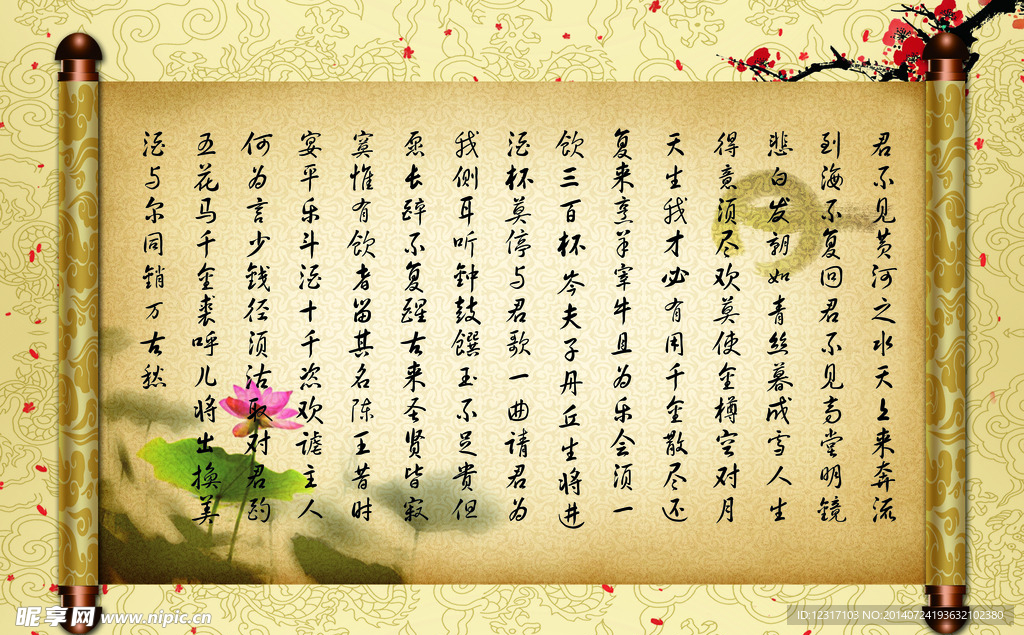 君不见黄河之水天上来奔流
到海不复回君不见高堂明镜
悲白发朝如青丝暮成雪人生
得意须尽欢莫使金樽空对月
天生我才必有用千金散尽还
复来烹羊宰牛且为乐会须一
饮三百杯岑夫子丹丘生将进
酒杯莫停与君歌一曲请君为
我侧耳听钟鼓馔玉不足贵但
愿长醉不复醒古来圣贤皆寂
寞惟有饮者留其名陈王昔时
宴平乐斗酒十千恣欢谑主人
何为言少钱径须沽取对君酌
五花马千金裘呼儿将出换美
酒与尔同销万古愁
昵享网 www.nipic.cn
ID:12317103 NO:20140724193632102380